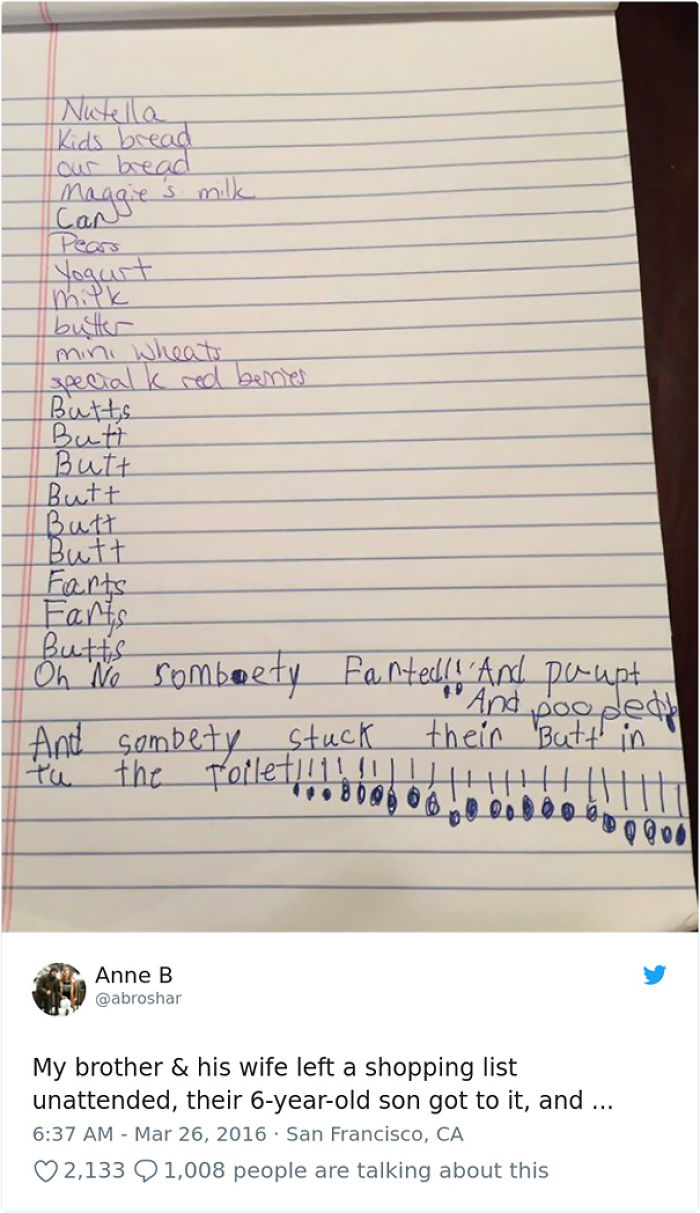 Nutella
Kids bread
our bread
Maggie's milk
Can
Pears
Yogurt
milk
butter
mini wheats
special k red berries
Butts
Butt
Butt
Butt
Butt
Butt
Farts
Farts
Butts
Oh No somboety Farted!!! And pu-upt
And pooped!
And sombety stuck their Butt in
tu the toilet!!!!!!!!!!!!!!!!!!!!!!!!
Anne B
@abroshar
My brother & his wife left a shopping list
unattended, their 6-year-old son got to it, and ...
6:37 AM - Mar 26, 2016 · San Francisco, CA
2,133 1,008 people are talking about this